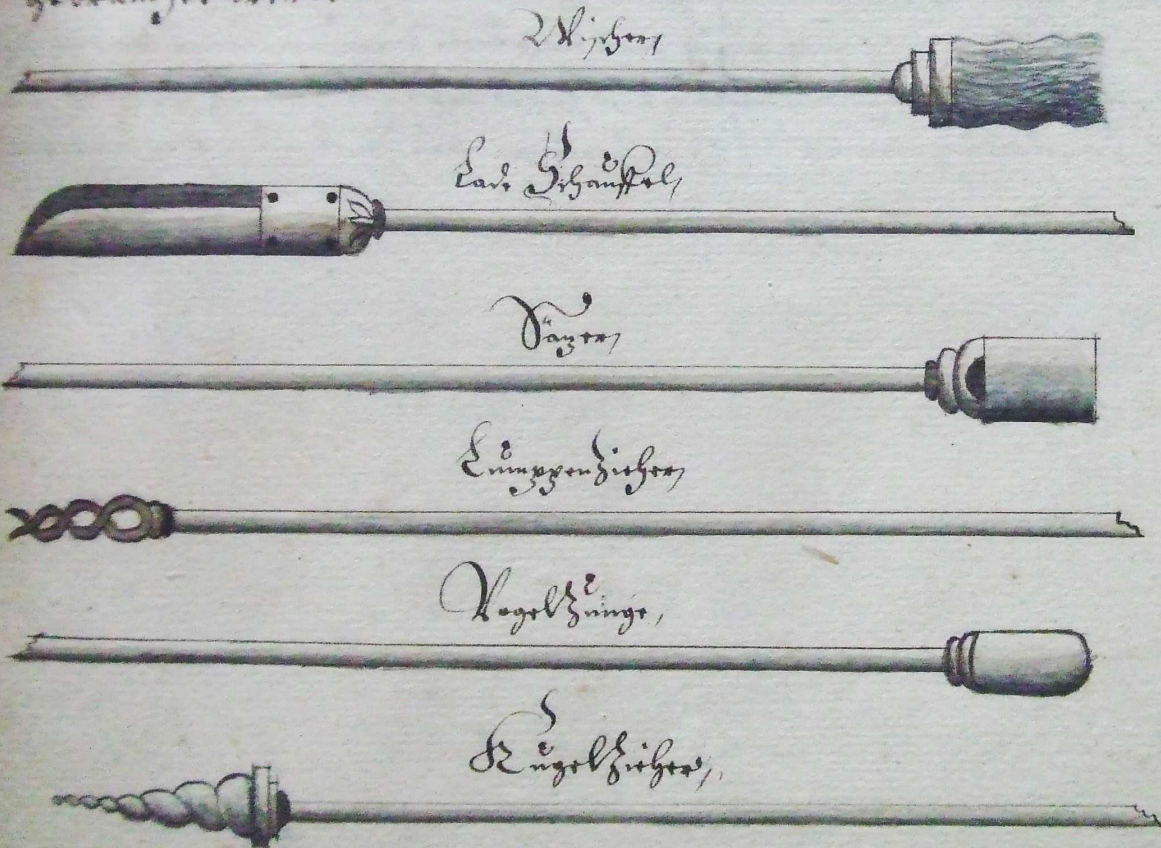 Wischer,
Lade Schauffel,
Säzer,
Lumppenzieher,
Vogelzunge,
Kugelzieher,